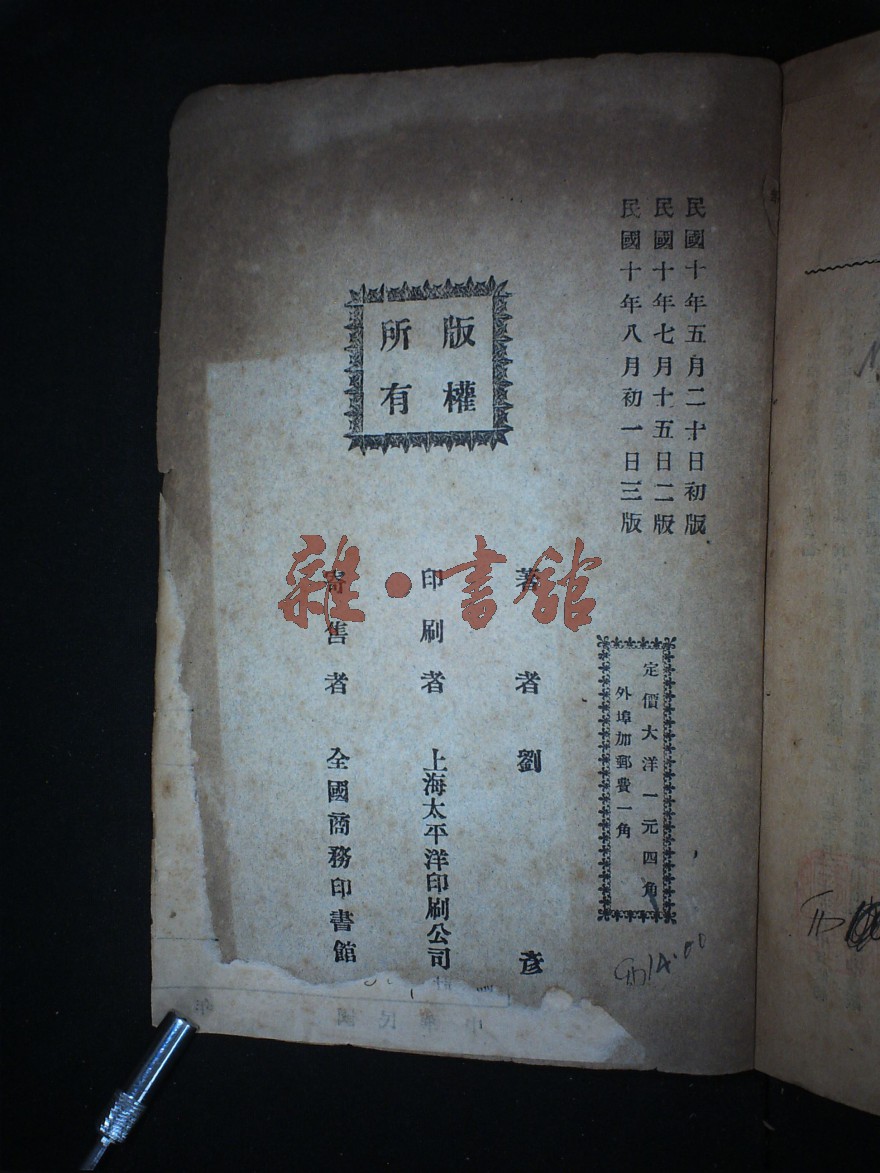 民國十年五月二十日初版
民國十年七月十五日二版
民國十年八月初一日三版
定價大洋一元四角
外埠加郵費一角
版權
所有
著者劉彥
印刷者 上海太平洋印刷公司
寄售者 全國商務印書館
雜·書館
14.00